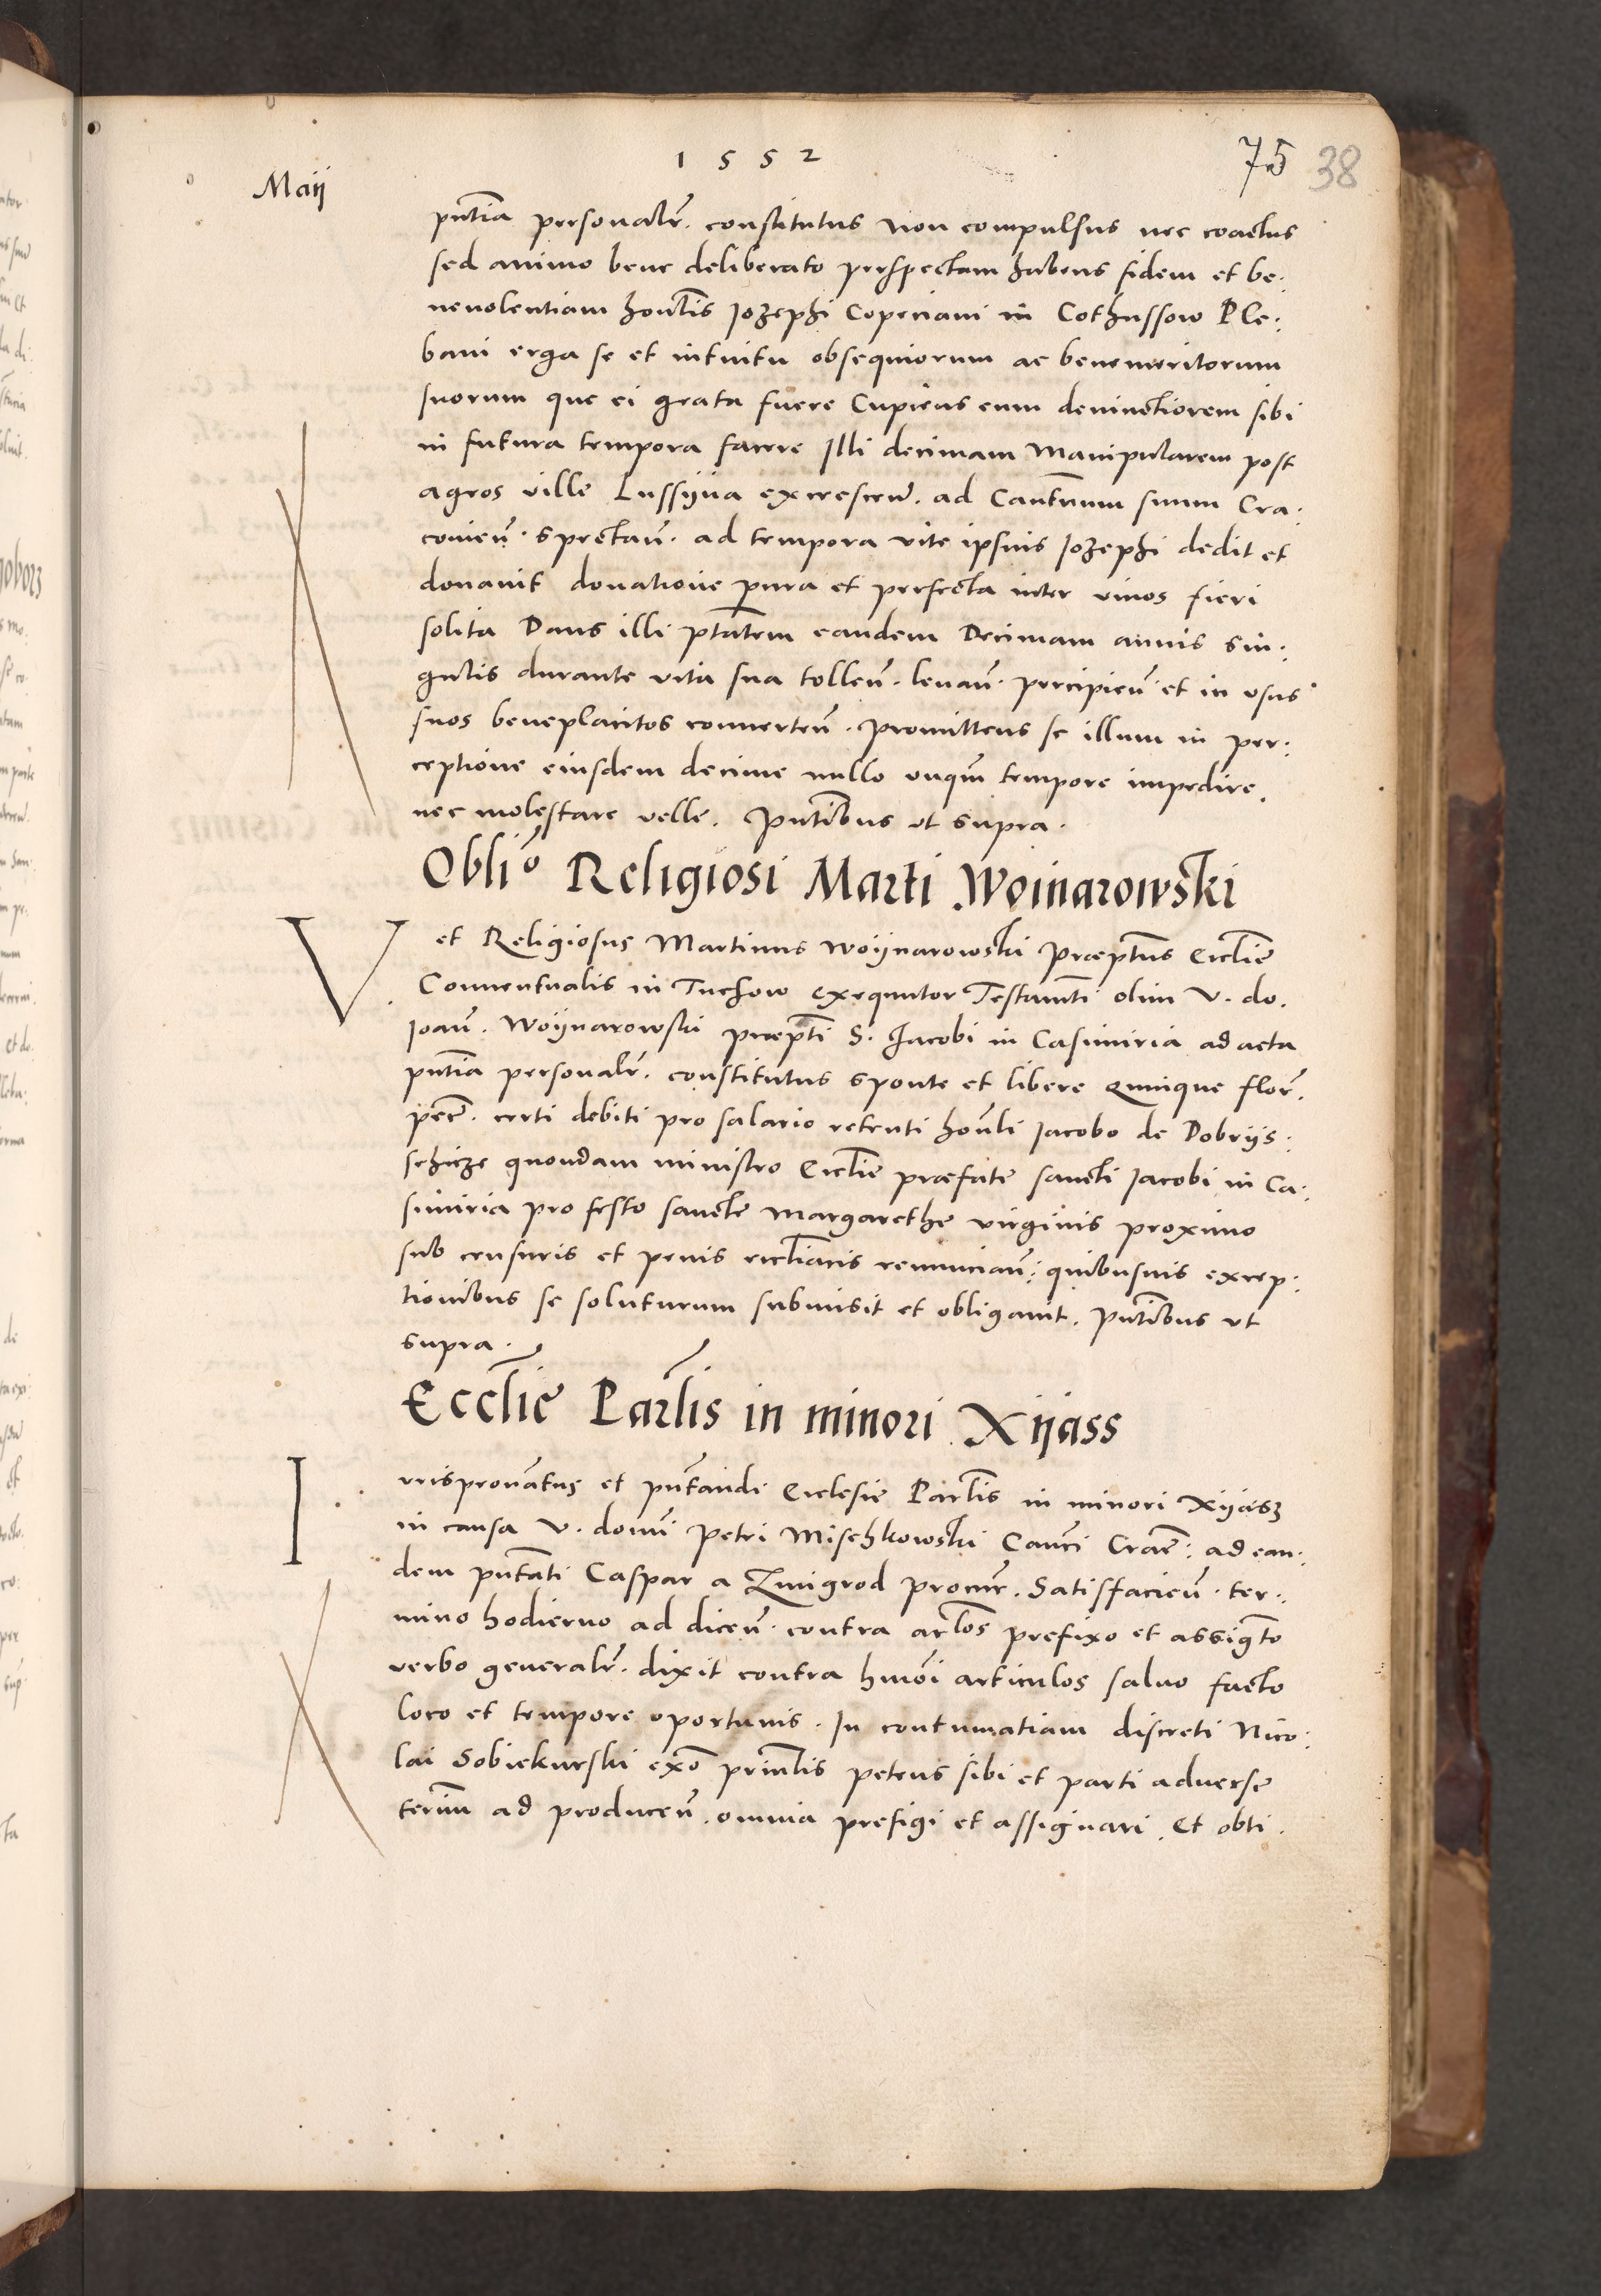 1552
75 38
Maii
pntia personalr. constitutus non compulsus nec coactus
sed animo bene deliberato perspectam habens fidem et be:
nevolentiam honlis Jozephi Copeciani in Cothussow Ple:
bani erga se et intuitu obsequiorum ac benemeritorum
suorum que ei grata fuere Cupiens eum devinctiorem sibi
in futura tempora facere Illi decimam Manipularem post
agros ville Lussijna excrescen. ad Cantnnum suum Cra:
covien. spectan. ad tempora vite ipsius Jozephi dedit et
donavit donatione pura et perfecta inter vivos fieri
solita Dans illi ptatem eandem Decimam annis sin:
gulis durante vita sua tollen. levan. percipien. et in usus
suos beneplacitos converten. promittens se illum in per:
ceptione eiusdem decime nullo unqm tempore impedire,
nec molestare velle. Pntibus ut supra.
Oblio Religiosi Marti Woinarowski
V et Religiosus Martinus Woijnarowski Praeptus Ecclie
Conventualis in Tuchow exequutor Testamti olim V. do.
Joan. Woijnarowski praepti S. Jacobi in Casimiria ad acta
pntia personalr. constitutus sponte et libere Quinque flor.
pec. certi debiti pro salario retenti honli Jacobo de Dobrijs:
schicze quondam ministro Ecclie praefate sancti Jacobi in Ca:
simiria pro festo sancte Margarethe virginis proximo
sub censuris et penis eccliacis renuncian: quibusvis excep:
tionibus se soluturum submisit et obligavit. Pntibus ut
supra.
Ecclie Parlis in minori Xijass
I urisprovatus et pntandi Ecclesie Parlis in minori Xijasz
in causa V. domi Petri Mischkowski Canci Crac: ad ean:
dem pntati Caspar a Zmigrod procur. Satisfacien. ter:
mino hodierno ad dicen. contra arlos prefixo et assigto
verbo generalr. dixit contra hmoi articulos salvo facto
loco et tempore oportunis. In contumatiam discreti Nico:
lai Sobiekurski exo prinlis petens sibi et parti adverse
termm ad producen. omnia prefigi et assignari. Et obti.